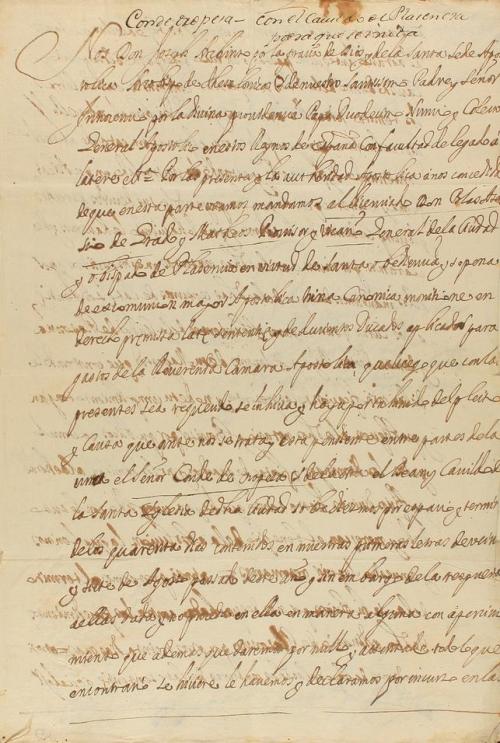 Conde de oropesa con el Cauildo de Plasencia
para que se remita
Nos Don Joseph por la gracia de Dios y de la Santa Sede Apos
tolica Arçobispo de de nuestro Santissimo Padre y Señor
Innocencio por la diuina prouidencia Papa Duodecimo Nuncio y Colector
General Apostolico en estos Reynos de España Con facultad de legado a
latere etª Por la presente y la authoridad Apostolica a nos concedida
de que en esta parte vsamos mandamos al lizenciado Don Blas
de Prado y Matheos Prouisor y Vicario General de la Ciudad
y obispado de Plasencia en virtud de santa obediencia y so pena
de excomunion mayor Apostolica trina Canonica monitione en
derecho premissa late sententie y de duzientos Ducados aplicados para
gastos de la Reuerenda Camara Apostolica que luego que con la
presente sea requerido se inhiua y haya por inhiuido del pleito
y Causa que ante nos se trata y esta pendiente entre partes de la
vna el Señor Conde de oropesa y de la otra el Dean y Cauildo de
la Santa Yglesia de dha Ciudad sobre diezmos por espacio y termino
de los quarenta dias contenidos en nuestras primeras letras de veinte
y siete de Agosto passado deste año y sin embargo de la respuesta
a ellas dada y no proceda en ella en manera alguna con aperciui
miento que ademas que daremos por nullo y atentado todo lo que
en contrario se hiciere le hauemos y declaramos por incurso en las